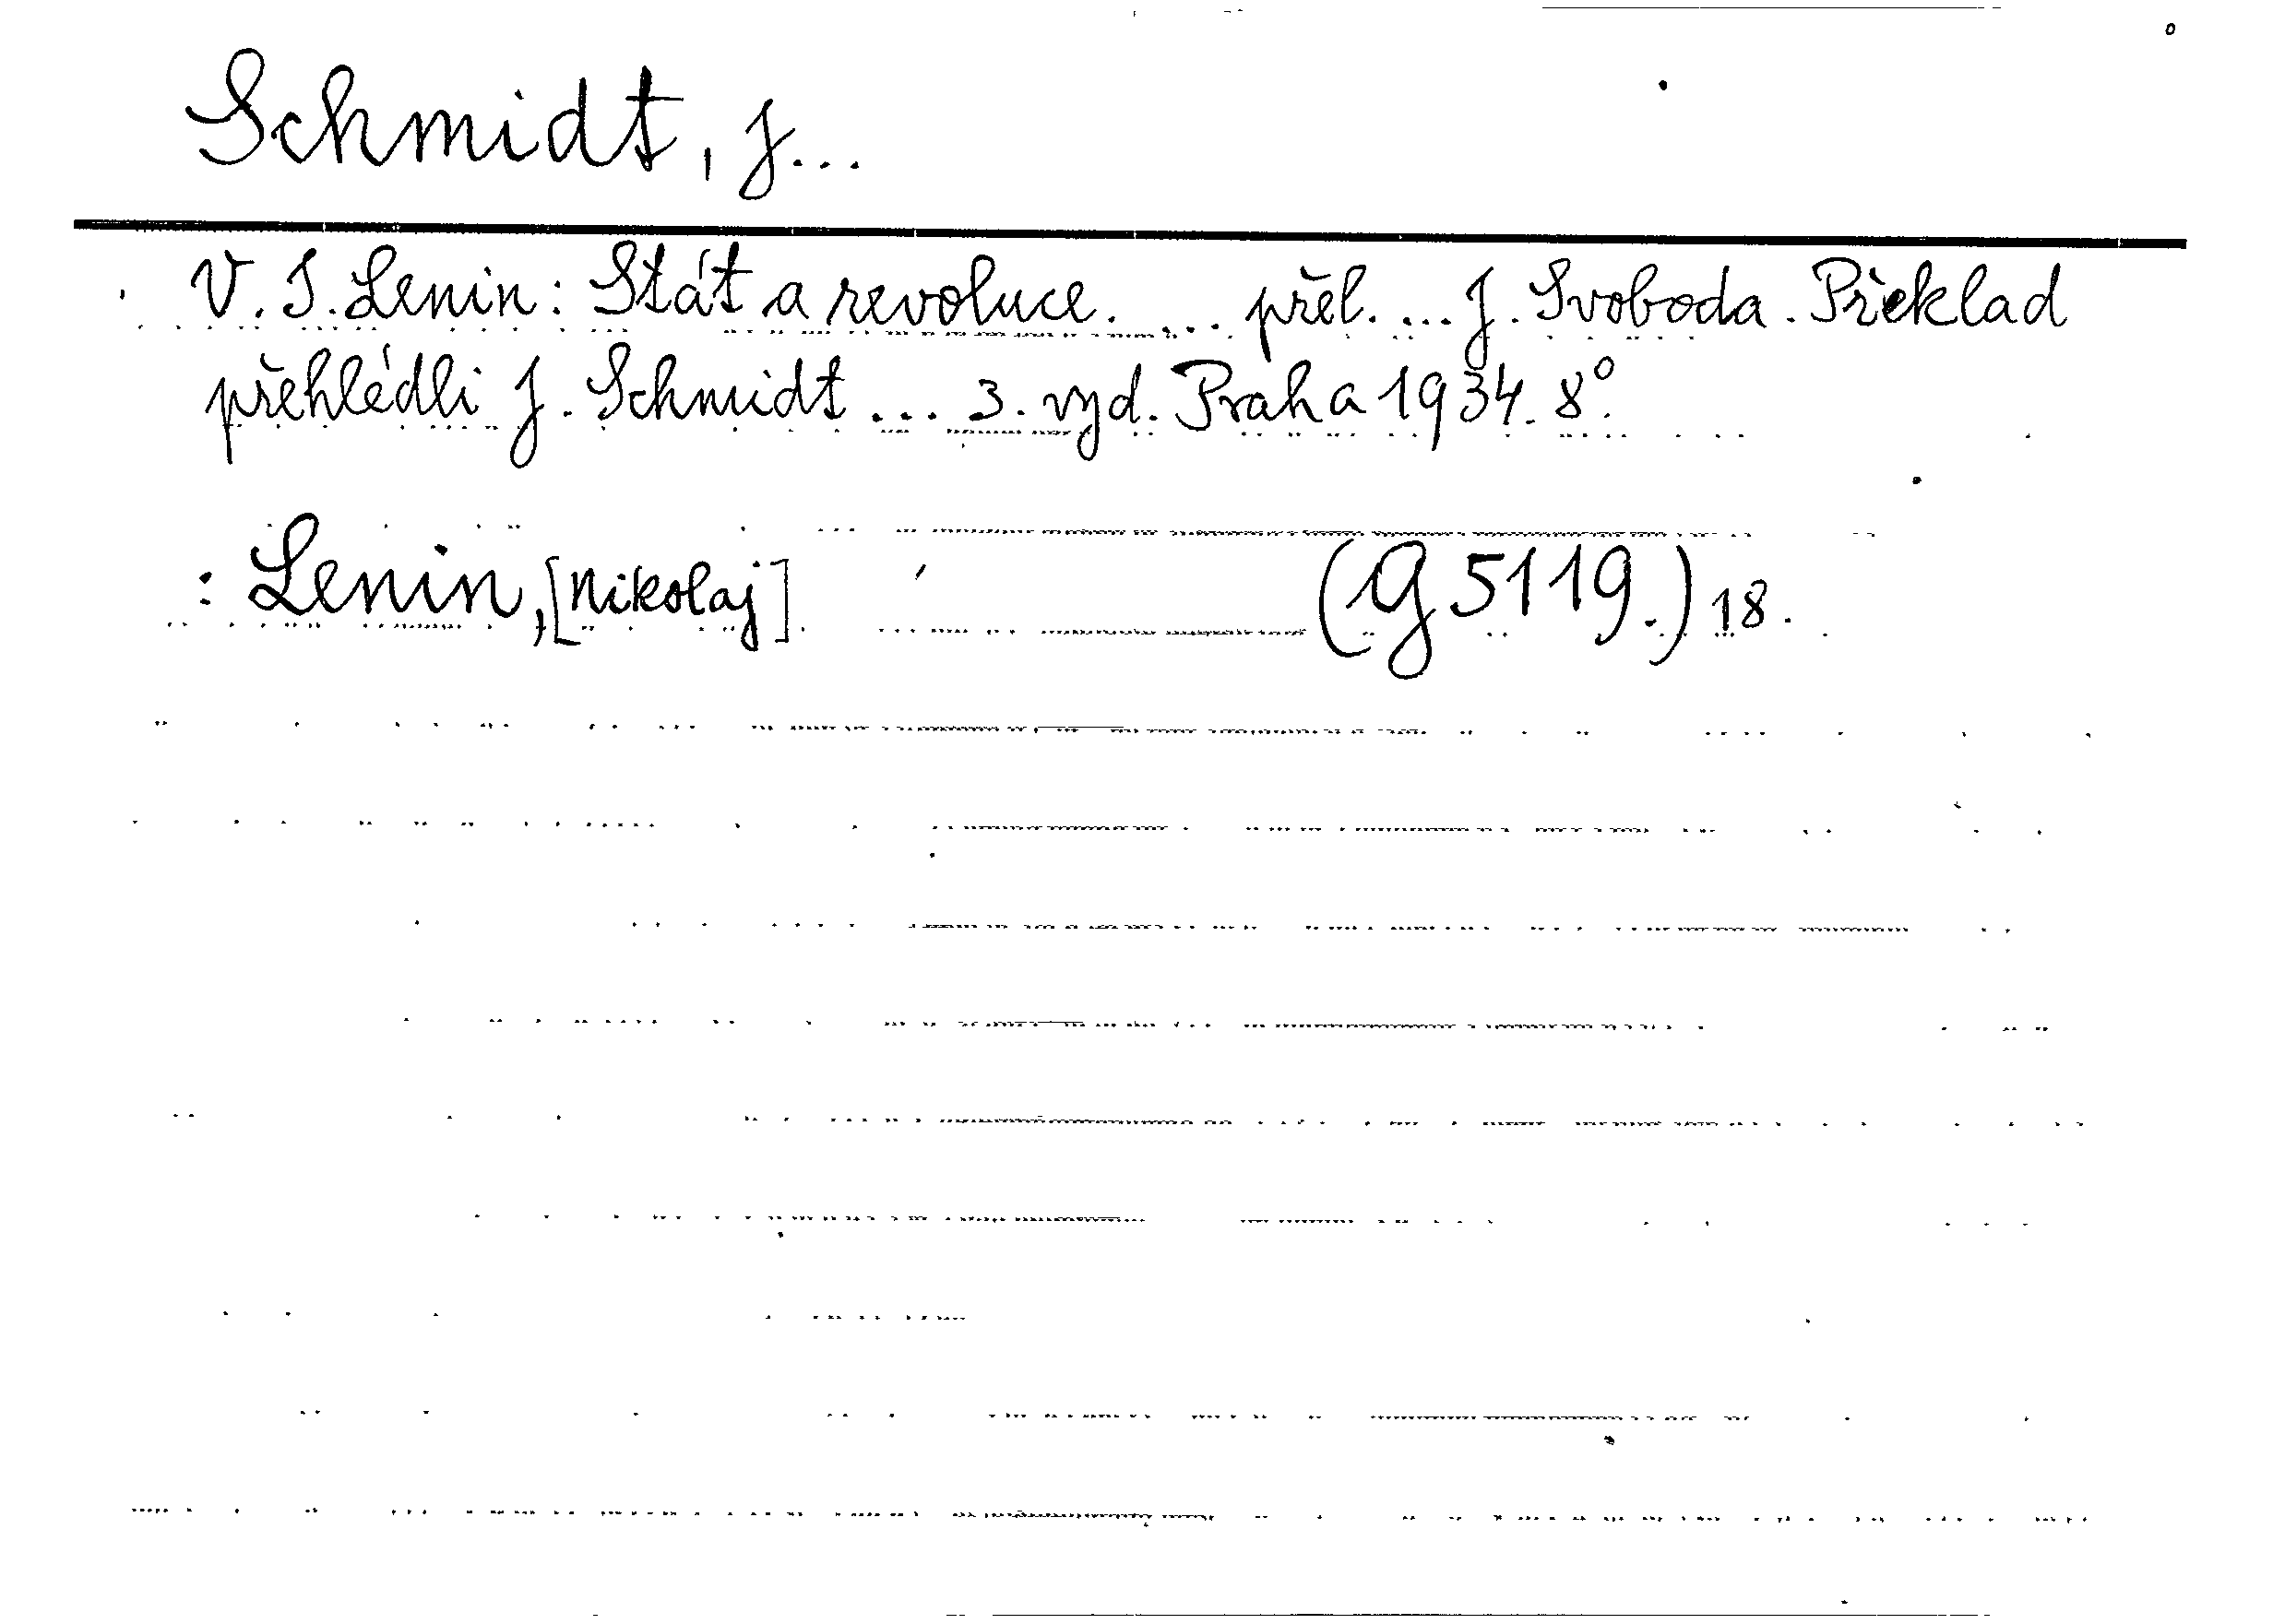 Schmidt, J...
V. I. Lenin: Stát a revoluce. ... přel. ... J. Svoboda. Překlad
přehlédli J. Schmidt ... 3. vyd. Praha 1934. 8°.
: Lenin, [Nikolaj] (G 5119.) 18.